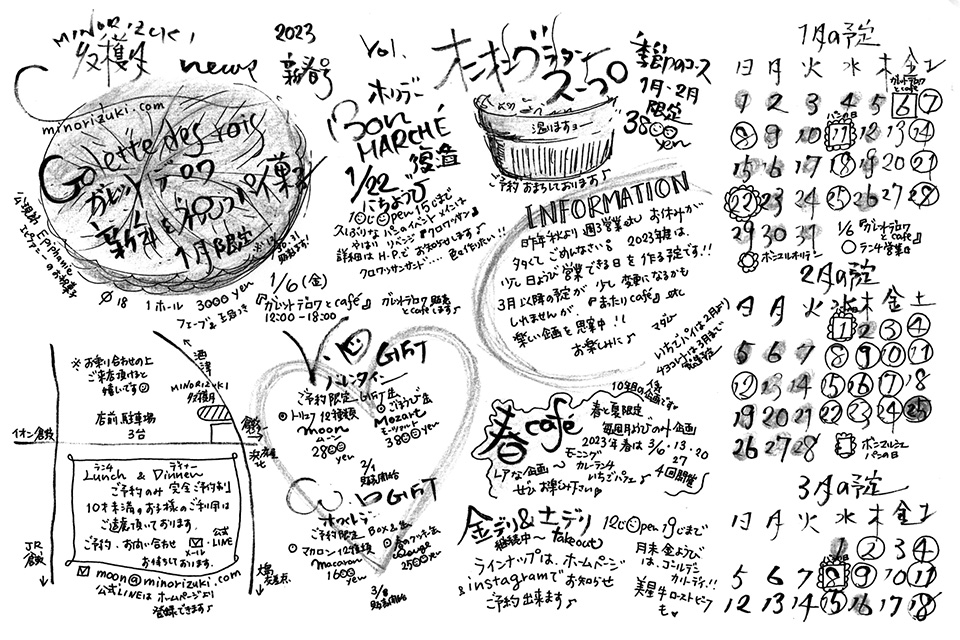 MINORIZUKI
多穫月
news
2023
新春号
Vol.
minorizuki.com
Galette des rois
ガレットデロワ
新年を祝うパイ菓子
1月限定
公現節 Epiphanie
エピファニーのお菓子
Ø18
1ホール 3000yen
フェーブ & 王冠つき
1/6(金)
『ガレットデロワとcafé』
12:00-18:00
ホリデー
Bon
MARCHÉ
復活
1/22
にちよう♪
10じOpen 15じまで
久しぶりなパンのイベント メインは
やはりリベンジ『クロワッサン』
詳細はH.P.でお知らせします♪
オニオングラタン
スープ
季節のコース
1月・2月
限定
3800yen
ご予約おまちしております♪
INFORMATION
昨年秋より週3営業もお休みが
多くてごめんなさい。2023年度は、
少し日より営業できる日を作る予定です!!
3月以降の予定が少し変更になるかも
しれませんが、『あたりcafé』etc
楽しい企画を思案中!!
お楽しみに♪ マダム
いちごパイは2月より
※お乗り合わせの上
ご来店頂けると
嬉しいです
酒津
MINORIZUKI
多穫月
店前駐車場
3台
イオン倉敷
JR
倉敷
ランチ ディナー
Lunch & Dinner
ご予約のみ 完全ご予約制
10才未満のお子様のご利用は
ご遠慮頂いております。
ご予約・お問い合わせ メール 公式LINE
お待ちしております
moon@minorizuki.com
公式LINEはホームページより
登録できます♪
GIFT
バレンタイン
ご予約限定 GIFT缶
トリュフ12種類
moon
ムーン
2800yen
ごほうび缶
Mozart
モーツァルト
3800yen
GIFT
ホワイトデー
ご予約限定 BOX & 缶
マカロン12種類
macaron
1600yen
春のクッキー缶
2500yen
春café
10年目の人気企画です♥
春と夏限定
毎週月よりのみの企画
2023年春は 3/6・13・20
27
4回開催
モーニング
カレーランチ
いちごパフェ
レアな企画〜
ぜひお楽しみ下さい♥
金デリ&土デリ
継続中〜 takeout
12じOpen 19じまで
ラインナップは、ホームページ
&instagramでお知らせ
ご予約出来ます♪
月末金よりび
は、ゴールデン
カリーデイ!!
美星牛ローストビーフ
も♥
1月の予定
日 月 火 水 木 金 土
ガレットデロワとcafé
1 2 3 4 5 6 7
パンの日
8 9 10 11 12 13 14
15 16 17 18 19 20 21
22 23 24 25 26 27 28
29 30 31
1/6『ガレットデロワとcafé』
ランチ営業日
ボンマルシェホリデー
2月の予定
日 月 火 水 木 金 土
1 2 3 4
5 6 7 8 9 10 11
12 13 14 15 16 17 18
19 20 21 22 23 24 25
26 27 28
ボンマルシェ
パンの日
3月の予定
日 月 火 水 木 金 土
1 2 3 4
5 6 7 8 9 10 11
12 13 14 15 16 17 18